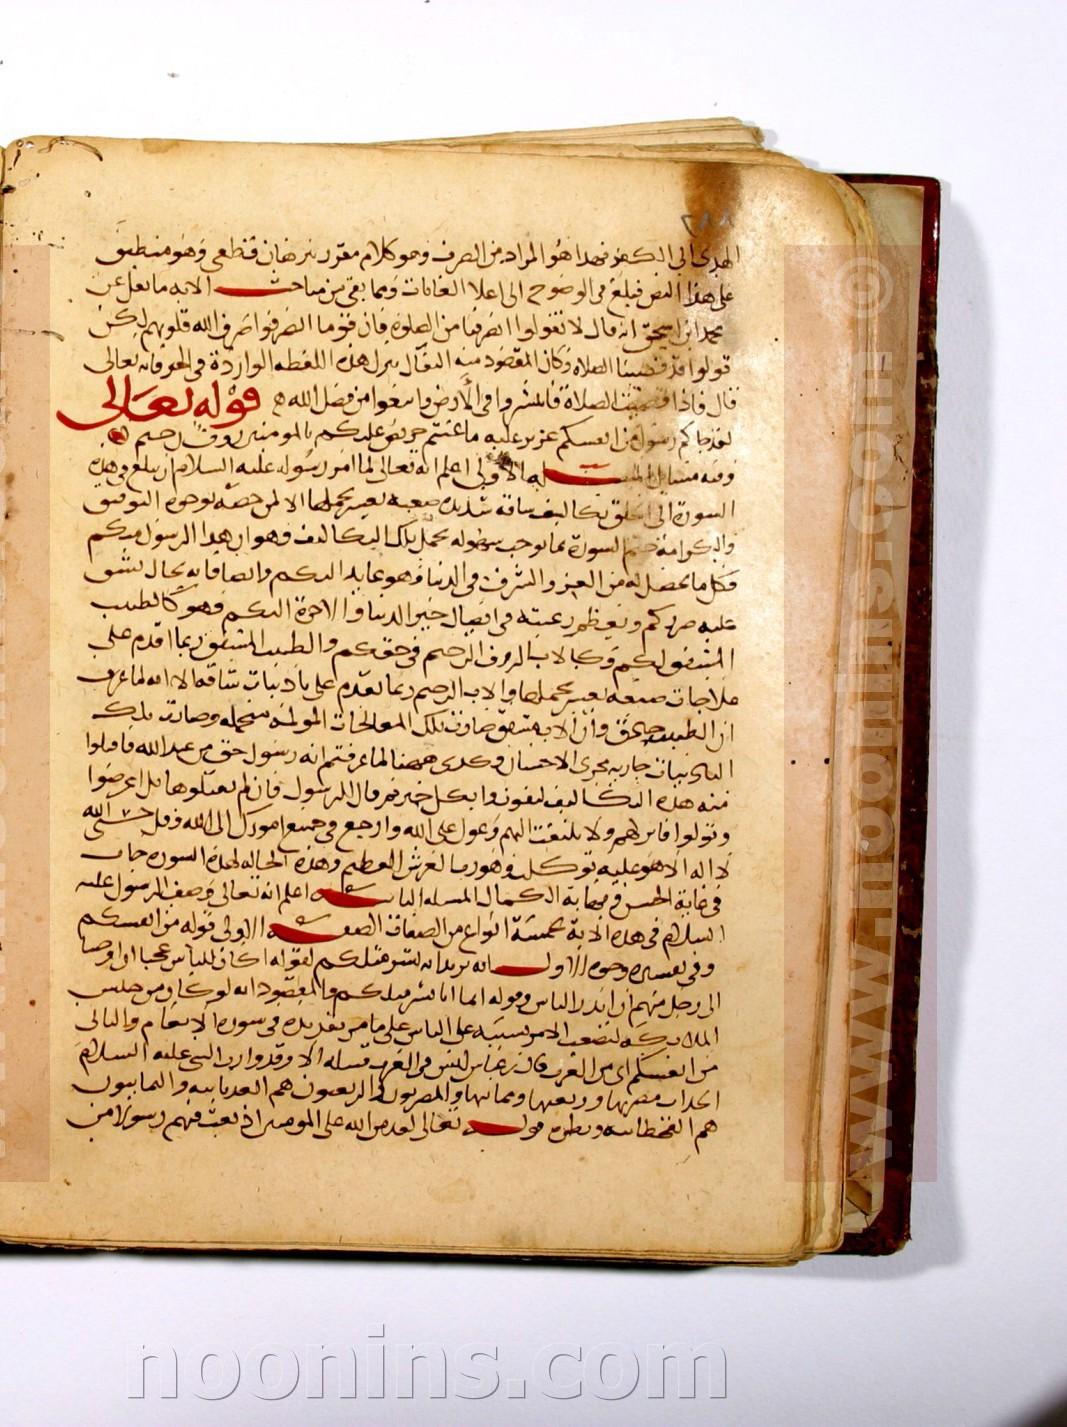 ٢٨٨
الهدى الى الكفر فهذا هو المراد من الصرف وهو كلام مقرر ببرهان قطعي وهو منطبق
على هذا النص فبلغ في الوضوح الى اعلا الغايات ومما بقي من مباحث الايه ما نقل عن
محمد ابن اسحق انه قال لا تقولوا انصرفنا من الصلوة فان قوما انصرفوا صرف الله قلوبهم لكن
قولوا قد قضينا الصلاه وكان المقصود منه التفاؤل بترك هذه اللفظه الوارده في الخير فانه تعالى
قال فاذا قضيت الصلاة فانتشروا في الارض وابتغوا من فضل الله قوله تعالى
لقد جاكم رسول من انفسكم عزيز عليه ما عنتم حريص عليكم بالمومنين روف رحيم
وفيه مسايل المسله الاولى اعلم انه تعالى لما امر رسوله عليه السلام ان يبلغ في هذه
السورة الى الخلق تكاليف شاقه شديده صعبه يعسر تحملها الا لمن خصه بوجوه التوفيق
والكرامة ختم السورة بما يوجب سهوله تحمل تلك التكاليف وهو ان هذا الرسول منكم
فكل ما يحصل له من العز والشرف في الدنيا فهو عايد اليكم وايضا فانه بحال يشق
عليه ضرركم وتعظم رغبته في ايصال خير الدنيا والاخرة اليكم فهو كالطبيب
المشفق لكم وكالاب الروف الرحيم في حقكم والطبيب المشفق ربما اقدم على
علاجات صعبه يعسر تحملها والاب الرحيم ربما يقدم على تاديبات شاقه الا انه لما عرف
ان الطبيب حاذق وان الاب مشفق صارت تلك المعالجات المولمه متحمله وصارت تلك
التاديبات جاريه مجرى الاحسان وكدى ههنا لما عرفتم انه رسول حق من عند الله فاقبلوا
منه هذه التكاليف لتفوزوا بكل خير ثم قال للرسول فان لم يقبلوها بل اعرضوا
وتولوا فاتركهم ولا تلتفت اليهم وعول على الله وارجع في جميع امورك الى الله وقل حسبي الله
لا اله الا هو عليه توكلت وهو رب العرش العظيم وهذه الخاتمه لهذه السوره جات
في غاية الحسن ونهاية الكمال المسله الثانيه اعلم انه تعالى وصف الرسول عليه
السلام في هذه الاية بخمسة انواع من الصفات الصفه الاولى قوله من انفسكم
وفي تفسيره وجوه الاول انه يريد انه بشر مثلكم لقوله اكان للناس عجبا ان اوحينا
الى رجل منهم ان انذر الناس وقوله انما انا بشر مثلكم والمقصود انه لو كان من جنس
الملايكه لصعب الامر بسببه على الناس على ما مر تقريره في سورة الانعام والثاني
من انفسكم اي من العرب قال ابن عباس ليس في العرب قبيله الا وقد ولدت النبي عليه السلام
مضرها وربيعها ويمانيها والمضريون والربعيون هم العدنانيه واليمانيون
هم القحطانيه ونظيره قوله تعالى لقد من الله على المومنين اذ بعث فيهم رسولا من
© noonins.com
www.noonins.com
noonins.com